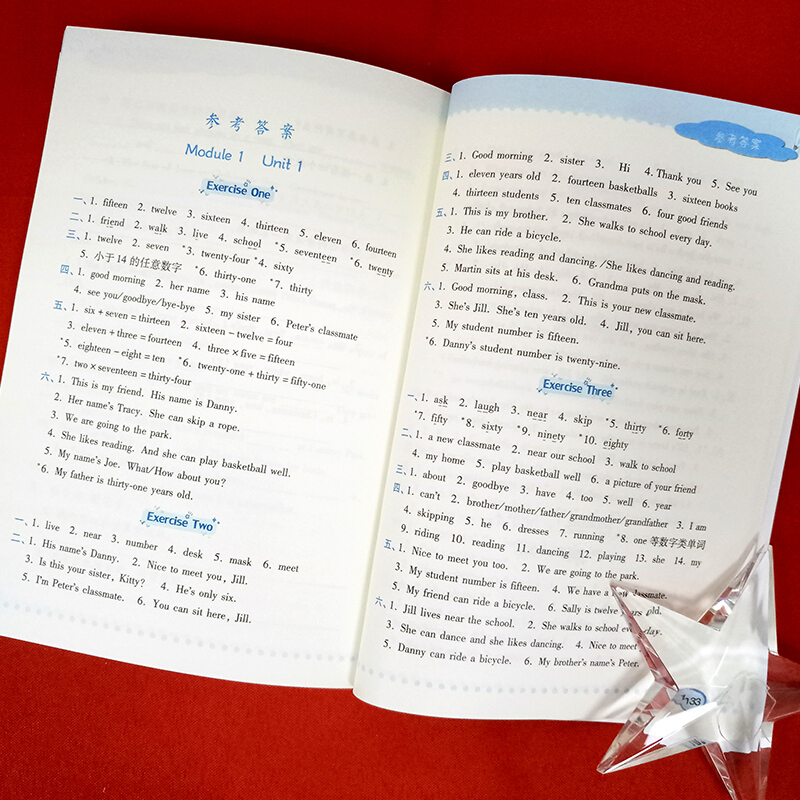 参考答案
Module 1 Unit 1
Exercise One
一、1. fifteen 2. twelve 3. sixteen 4. thirteen 5. eleven 6. fourteen
二、1. friend 2. walk 3. live 4. school *5. seventeen *6. twenty
三、1. twelve 2. seven *3. twenty-four *4. sixty
5. 小于14的任意数字 *6. thirty-one *7. thirty
四、1. good morning 2. her name 3. his name
4. see you/goodbye/bye-bye 5. my sister 6. Peter's classmate
五、1. six + seven = thirteen 2. sixteen – twelve = four
3. eleven + three = fourteen 4. three × five = fifteen
*5. eighteen – eight = ten *6. twenty-one + thirty = fifty-one
*7. two × seventeen = thirty-four
六、1. This is my friend. His name is Danny.
2. Her name's Tracy. She can skip a rope.
3. We are going to the park.
4. She likes reading. And she can play basketball well.
5. My name's Joe. What/How about you?
*6. My father is thirty-one years old.
Exercise Two
一、1. live 2. near 3. number 4. desk 5. mask 6. meet
二、1. His name's Danny. 2. Nice to meet you, Jill.
3. Is this your sister, Kitty? 4. He's only six.
5. I'm Peter's classmate. 6. You can sit here, Jill.
参考答案
三、1. Good morning 2. sister 3. Hi 4. Thank you 5. See you
四、1. eleven years old 2. fourteen basketballs 3. sixteen books
4. thirteen students 5. ten classmates 6. four good friends
五、1. This is my brother. 2. She walks to school every day.
3. He can ride a bicycle.
4. She likes reading and dancing./She likes dancing and reading.
5. Martin sits at his desk. 6. Grandma puts on the mask.
六、1. Good morning, class. 2. This is your new classmate.
3. She's Jill. She's ten years old. 4. Jill, you can sit here.
5. My student number is fifteen.
*6. Danny's student number is twenty-nine.
Exercise Three
一、1. ask 2. laugh 3. near 4. skip *5. thirty *6. forty
*7. fifty *8. sixty *9. ninety *10. eighty
二、1. a new classmate 2. near our school 3. walk to school
4. my home 5. play basketball well 6. a picture of your friend
三、1. about 2. goodbye 3. have 4. too 5. well 6. year
四、1. can't 2. brother/mother/father/grandmother/grandfather 3. I am
4. skipping 5. he 6. dresses 7. running *8. one 等数字类单词
9. riding 10. reading 11. dancing 12. playing 13. she 14. my
五、1. Nice to meet you too. 2. We are going to the park.
3. My student number is fifteen. 4. We have a new classmate.
5. My friend can ride a bicycle. 6. Sally is twelve years old.
六、1. Jill lives near the school. 2. She walks to school every day.
3. She can dance and she likes dancing. 4. Nice to meet
5. Danny can ride a bicycle. 6. My brother's name's Peter.
133